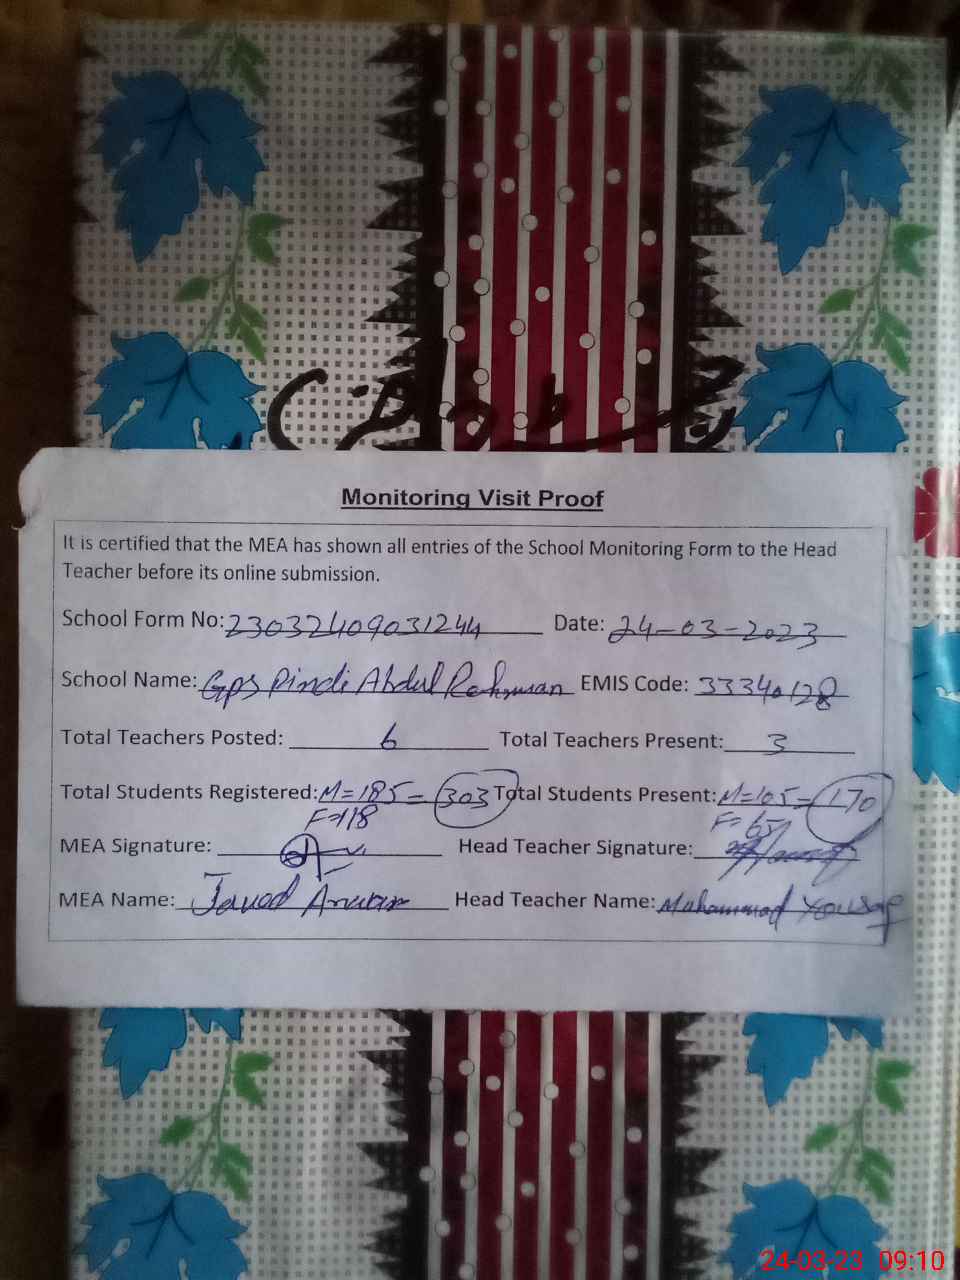 Monitoring Visit Proof
It is certified that the MEA has shown all entries of the School Monitoring Form to the Head
Teacher before its online submission.
School Form No: 23032409031244 Date: 24-03-2023
School Name: Gps Pindi Abdul Rehman EMIS Code: 33340128
Total Teachers Posted: 6 Total Teachers Present: 3
Total Students Registered: M=185= 303 Total Students Present: M=105= 170
F=118 F=65
MEA Signature: Head Teacher Signature:
MEA Name: Javed Anwar Head Teacher Name: Muhammad Yousaf
24-03-23 09:10